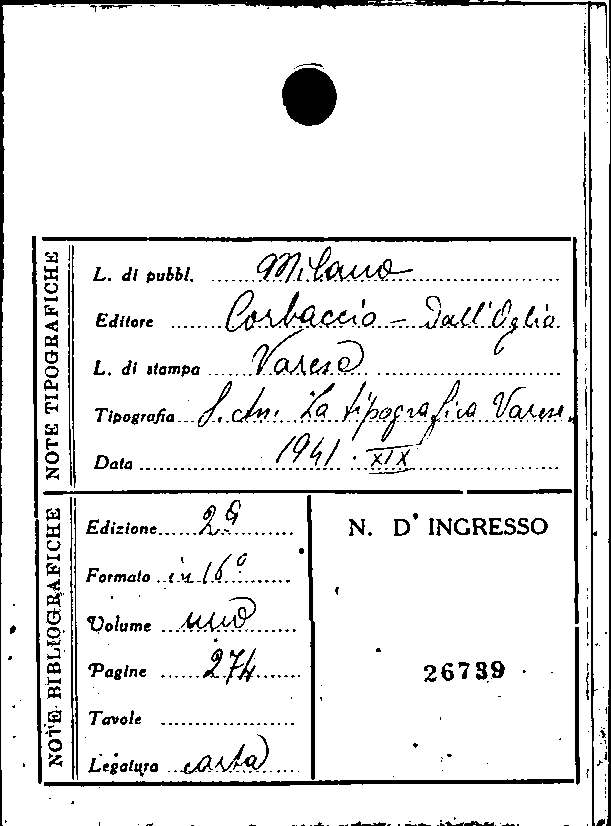 NOTE TIPOGRAFICHE
L. di pubbl. Milano
Editore Corbaccio - Dall'Oglio
L. di stampa Varese
Tipografia S. An. La tipografica Varese.
Data 1941 . XIX
NOTE BIBLIOGRAFICHE
Edizione 2ª
Formato in 16°
Volume uno
Pagine 274
Tavole
Legatura carta
N. D' INGRESSO
26739